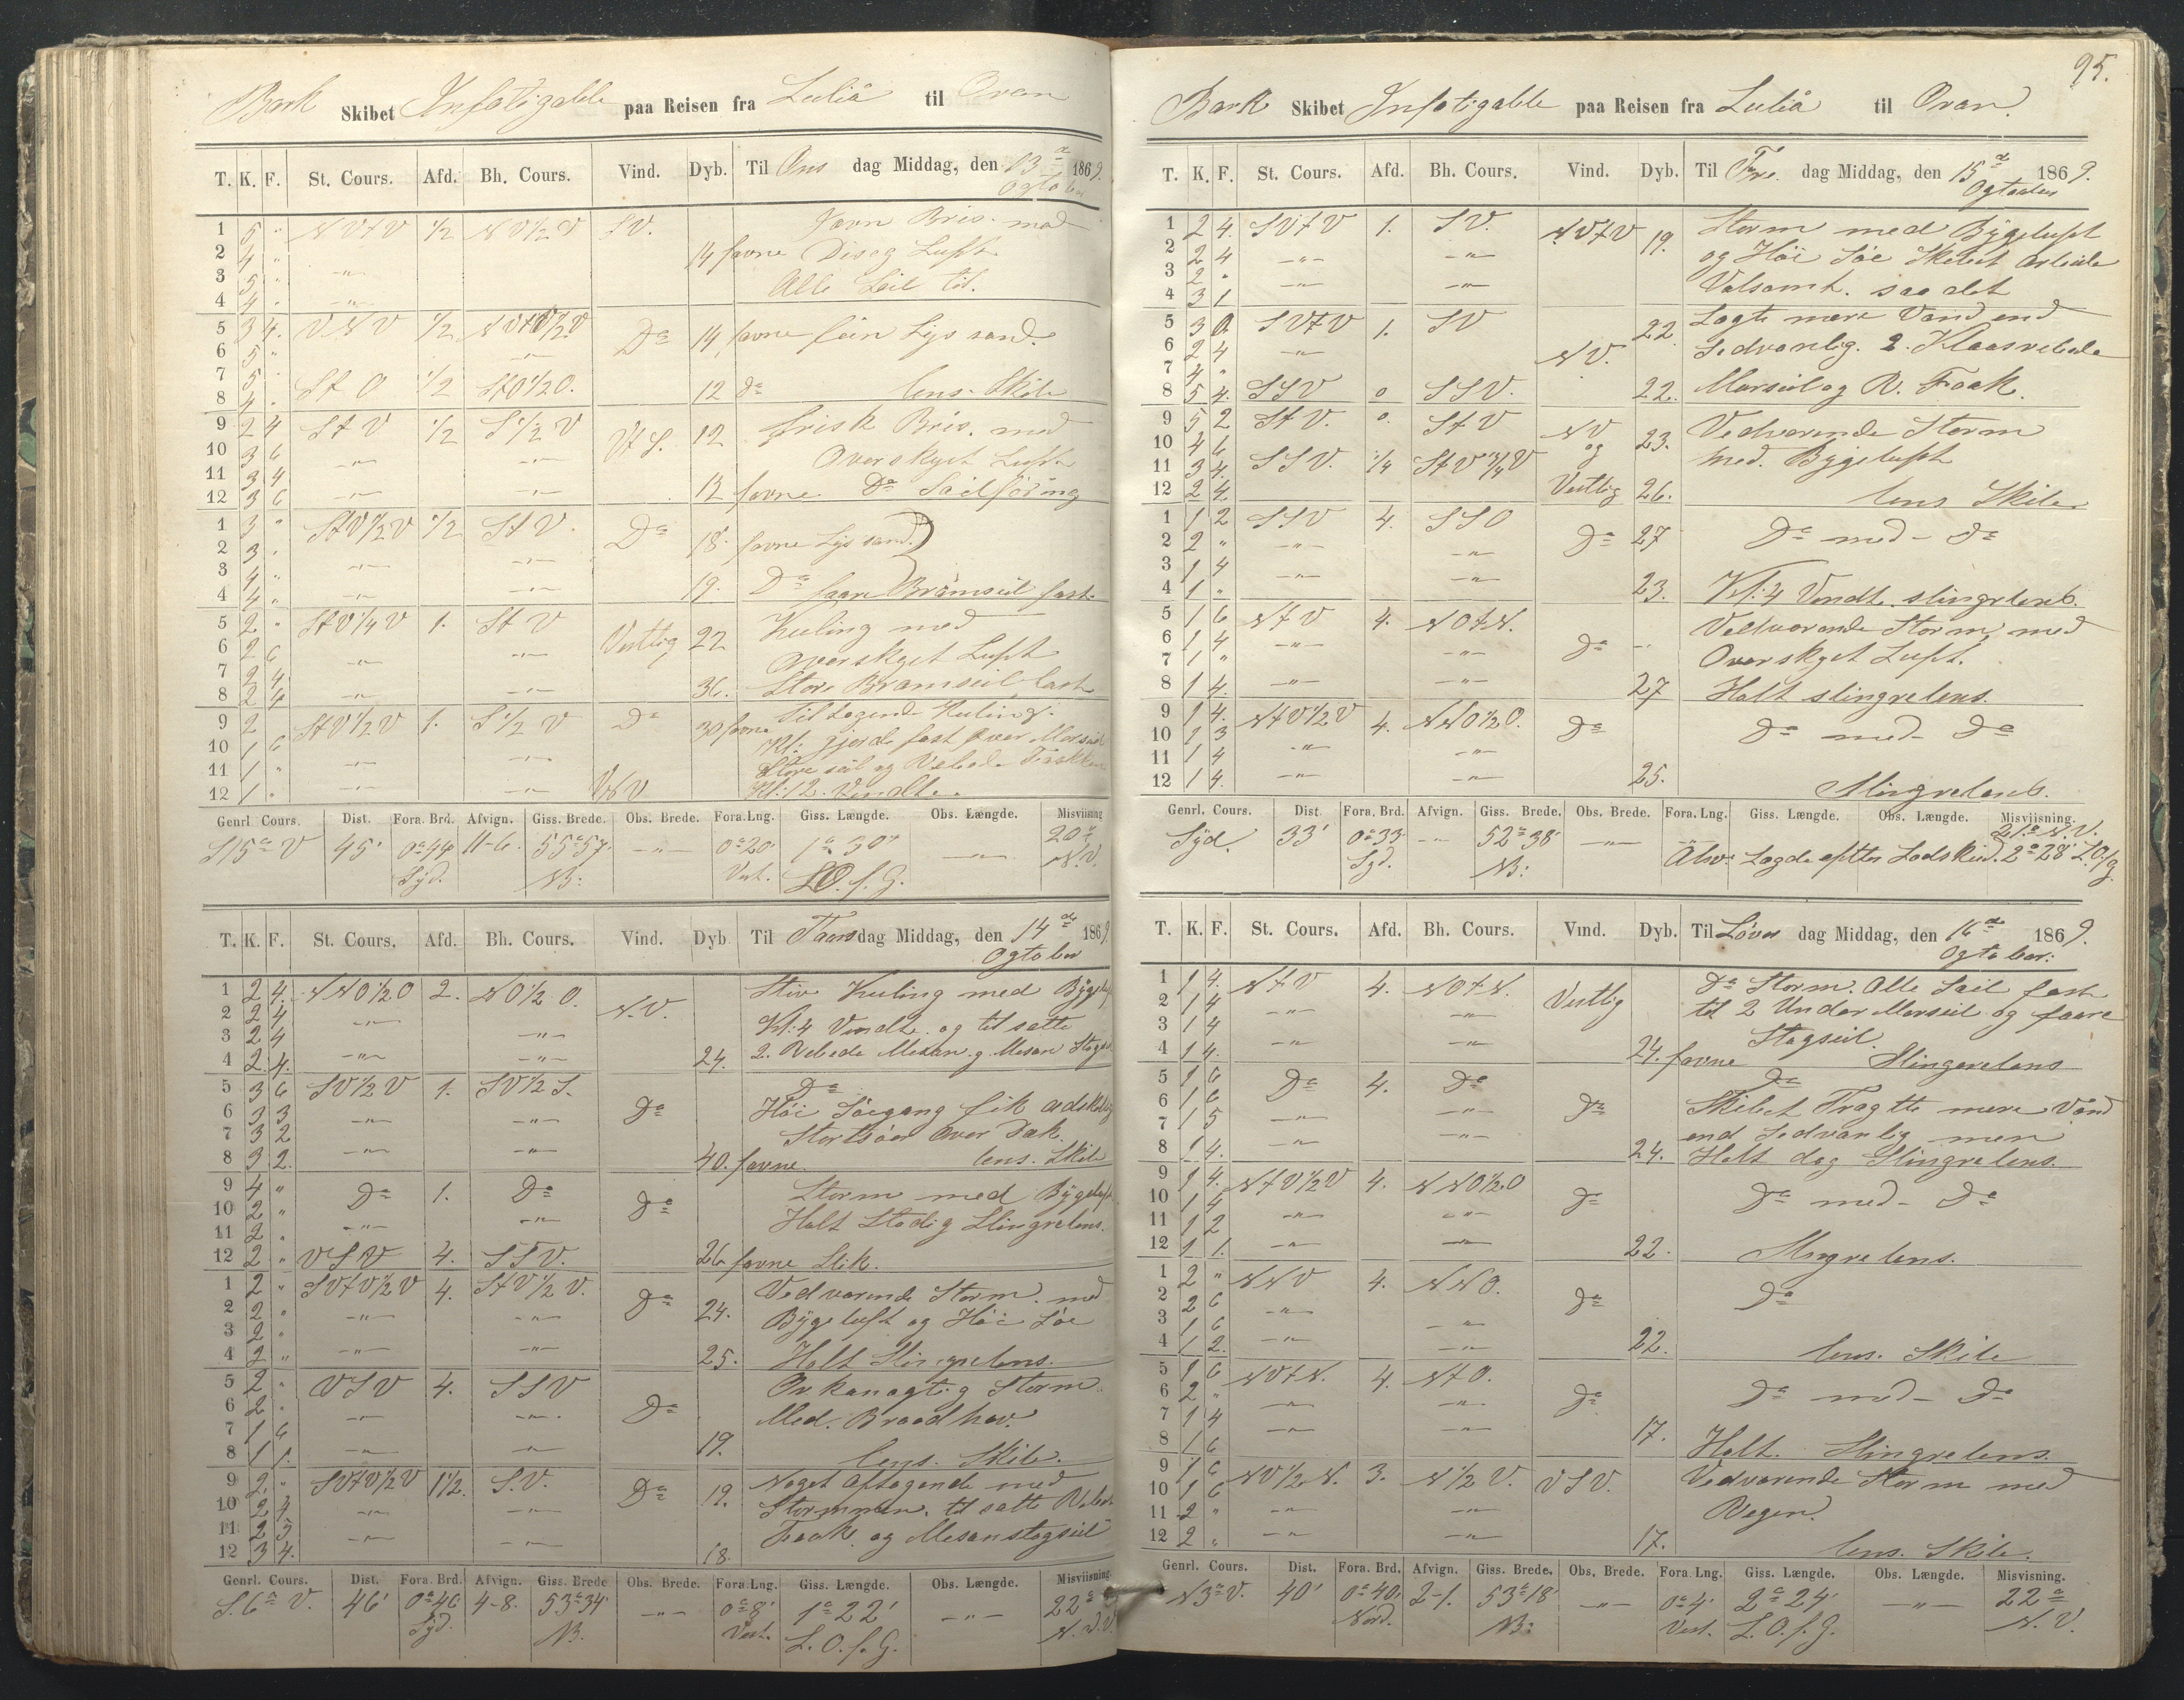 Bark Skibet Infatigable paa Reisen fra Luliå til Oran
T. K. F. St. Cours. Afd. Bh. Cours. Vind. Dyb. Til Ons dag Middag, den 13de 1869.
Ogtober
1 5 " NVtV 1/2 NV1/2V SV. Javn Bris. med
2 4 " 14 favne Diseg Luft
3 5 " -"- Alle Seil til.
4 4 " -"-
5 3 4. VNV 1/2 Da 14 favne fiin Lys sand.
6 5 " -"-
7 5 "
8 4 . St O 1/2 St O1/2O. 12 da lens. Skib
9 2 4 St V 1/2 S1/2V VtS. 12 frisk Bris. med
10 3 6 -"- -"- Overskyet Luft
11 3 4
12 3 6 -"- -"- 12 favne Da Sailföring
1 3 " StV1/2V 1/2 StV. Da 18 favne Lys sand.
2 3 " -"- -"-
3 4 "
4 4 " -"- -"- 19. Da faare Bramseil fast.
5 2 " StV1/4V 1. StV Vestlig 22 Kuling med
6 2 6 -"- -"- Overskyet Luft
7 2 4
8 2 4 -"- -"- 36. Store Bramseil fast
9 2 StV1/2V 1. S1/2V Da 30 favne Tiltagende Kuling.
10 1 6 -"- Kl: gjorde fast Over Mersseil
11 1 " -"- Store seil og Rebede Fokken
12 1 " -"- -"- Kl: 12. Vendte.
Genrl. Cours. Dist. Fora. Brd. Afvign. Giss. Brede. Obs. Brede. Fora. Lng. Giss. Længde. Obs. Længde. Misviisning
S15°V 45' 0°44 11-6. 55°57' -"- 0°20' 1°30' -"- 20°
Syd. NB: Vest. LO. f. G. N.V.
T. K. F. St. Cours. Afd. Bh. Cours. Vind. Dyb. Til Taars dag Middag, den 14de 1869.
Ogtober
1 2 4. NNO1/2O 2. NO1/2O. N.V. Stiv Kuling med Bygeluft
2 2 4 -"- Kl: 4 Vendte. og til satte
3 2 4 -"-
4 2. 4. -"- -"- 24. 2. Rebede Mesan. g. Mesan Stagseil
5 3 6 SV1/2V 1. SV1/2S. Da Da
6 3 3 -"- -"- Höi Söegang fik adskellig
7 3 2 Stortsöer Over Dæk.
8 3 2. -"- -"- 40. favne. lens. Skib
9 4 " Da 1. Da Da Storm med Bygeluft
10 2 " -"- -"- Holt Stadig Slingrelens.
11 2 .
12 2 " VSV 4. SSV. 26 favne Stik.
1 2 " SVtV1/2V 4. StV1/2V. Da 24. Vedvarende Storm. med
2 2 " -"- -"- Bygeluft og Höi Söe
3 2 "
4 2 " -"- -"- 25. Holt Slingrelens.
5 2 " VSV 4. SSV Da Orkanagtig Storm.
6 2 " -"- -"- Med. Braadhav.
7 1 6
8 1 1. -"- -"- 19. lens. Skib.
9 2. " SVtV1/2V 1 1/2. S.V. Da 19. Noget Aftagende med
10 2 4 -"- -"- Stormmen. til satte Rebet
11 2 3 -"- Faak. og Mesanstagseil
12 3 4. -"- 18.
Genrl. Cours. Dist. Fora. Brd. Afvign. Giss. Brede Obs. Brede. Fora. Lng. Giss. Længde. Obs. Længde. Misviisning.
S.6°V. 46' 0°46 4-8. 53°34' -"- 0°8' 1°22' -"- 22°
Syd. NB. Vest. L. O. f. G. N.V.
95.
Bark Skibet Infatigable paa Reisen fra Luliå til Oran.
T. K. F. St. Cours. Afd. Bh. Cours. Vind. Dyb. Til Fre. dag Middag, den 15de 1869.
Ogtober
1 2 4. SVtV 1. SV. NVtV 19. Storm med Bygeluft
2 2 4 -"- -"- og Höi Söe Skibet Arbeide
3 2 " -"- -"- Volsomt. saa det
4 3 1
5 3 0. SVtV 1. SV 22. Lagte mere Vand end
6 2 4 -"- NV. Sedvanlig. 2. Klaasrebede
7 4 "
8 5 4. SSV 0 SSV. 22. Merseil og R. Faak.
9 5 2 StV. 0. StV NV 23. Vedvarende Storm
10 4 6 og med. Bygeluft
11 3 4. SSV. 1/4 StV3/4V
12 2 4. Vestlig 26. lens Skib.
1 1 2 SSV 4. SSO Da 27 Da med - da
2 2 " -"- -"-
3 1 4 -"- -"-
4 1 " 23. Kl: 4 Vendte. slingrlens.
5 1 6 NtV 4. NOtN. Vedvarende Storm. med
6 1 4 -"- -"- Da -" Overskyet Luft.
7 1 "
8 1 4. -"- -"- 27 Holt slingrelens.
9 1 4. NtV1/2V 4. NNO1/2O. Da Da med - Da
10 1 3 -"- -"-
11 1 4
12 1 4. -"- -"- 25. Slingrelens.
Genrl. Cours. Dist. Fora. Brd. Afvign. Giss. Brede. Obs. Brede. Fora. Lng. Giss. Længde. Obs. Længde. Misviisning.
Syd. 33' 0°33 -"- 52°38' -"- -"- 21° N.V.
Syd. NB: Lagde efter Lodskud. 2°28' L.O. f. g.
T. K. F. St. Cours. Afd. Bh. Cours. Vind. Dyb. Til Löver dag Middag, den 16de 1869.
Ogtober.
1 1 4. NtV 4. NOtN. Vestlig Da Storm. Alle Sail fast
2 1 4 -"- -"- til 2 Under Merseil og faare
3 1 4 Stagseil.
4 1 4. -"- -"- 24. favne Slingerelens
5 1 6 Da 4. Da Da Da
6 1 6 -"- Skibet Tragtte mere Vand
7 1 5 -"- end Sedvanlig men
8 1 4. -"- -"- 24. Holt dog Slingrelens.
9 1 4. NtV1/2V 4. NNO1/2O Da Da med - Da
10 1 4 -"- -"-
11 1 2
12 1 1. -"- -"- 22. Slingrelens.
1 2 " NNV 4. NNO. Da Da
2 2 6 -"-
3 1 6 -"-
4 1 2. -"- -"- 22. lens. Skib
5 1 6 NVtN. 4. NtO. Da Da med - Da
6 2 " -"- -"-
7 1 4
8 1 6 -"- -"- 17. Holt. Slingrelens.
9 1 6 NV1/2N. 3. N1/2V. VSV. Vedvarende Storm med
10 1 6 Regen.
11 2 " -"- -"-
12 2 " -"- -"- 17. lens. Skib.
Genrl. Cours. Dist. Fora. Brd. Afvign. Giss. Brede. Obs. Brede. Fora. Lng. Giss. Længde. Obs. Længde. Misviisning.
N3°V. 40' 0°40' 2-1. 53°18' -"- 0°4' 2°24' -"- 22°
Nord. NB: Vest. L. O. f. G. N.V.